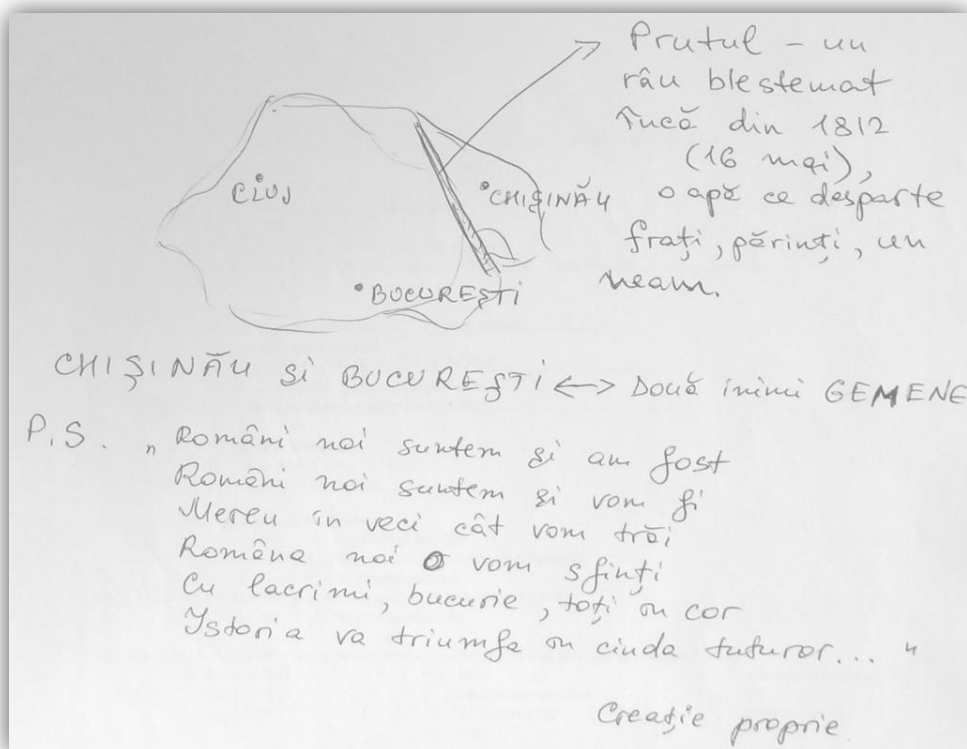 Prutul - un
râu blestemat
încă din 1812
(16 mai),
o apă ce desparte
frați, părinți, un
neam.
CLUJ
CHIȘINĂU
BUCUREȘTI
CHIȘINĂU și BUCUREȘTI <-> Două inimi GEMENE
P.S. „Români noi suntem și am fost
Români noi suntem și vom fi
Mereu în veci cât vom trăi
Româna noi o vom sfinți
Cu lacrimi, bucurie, toți în cor
Istoria va triumfa în ciuda tuturor... "
Creație proprie